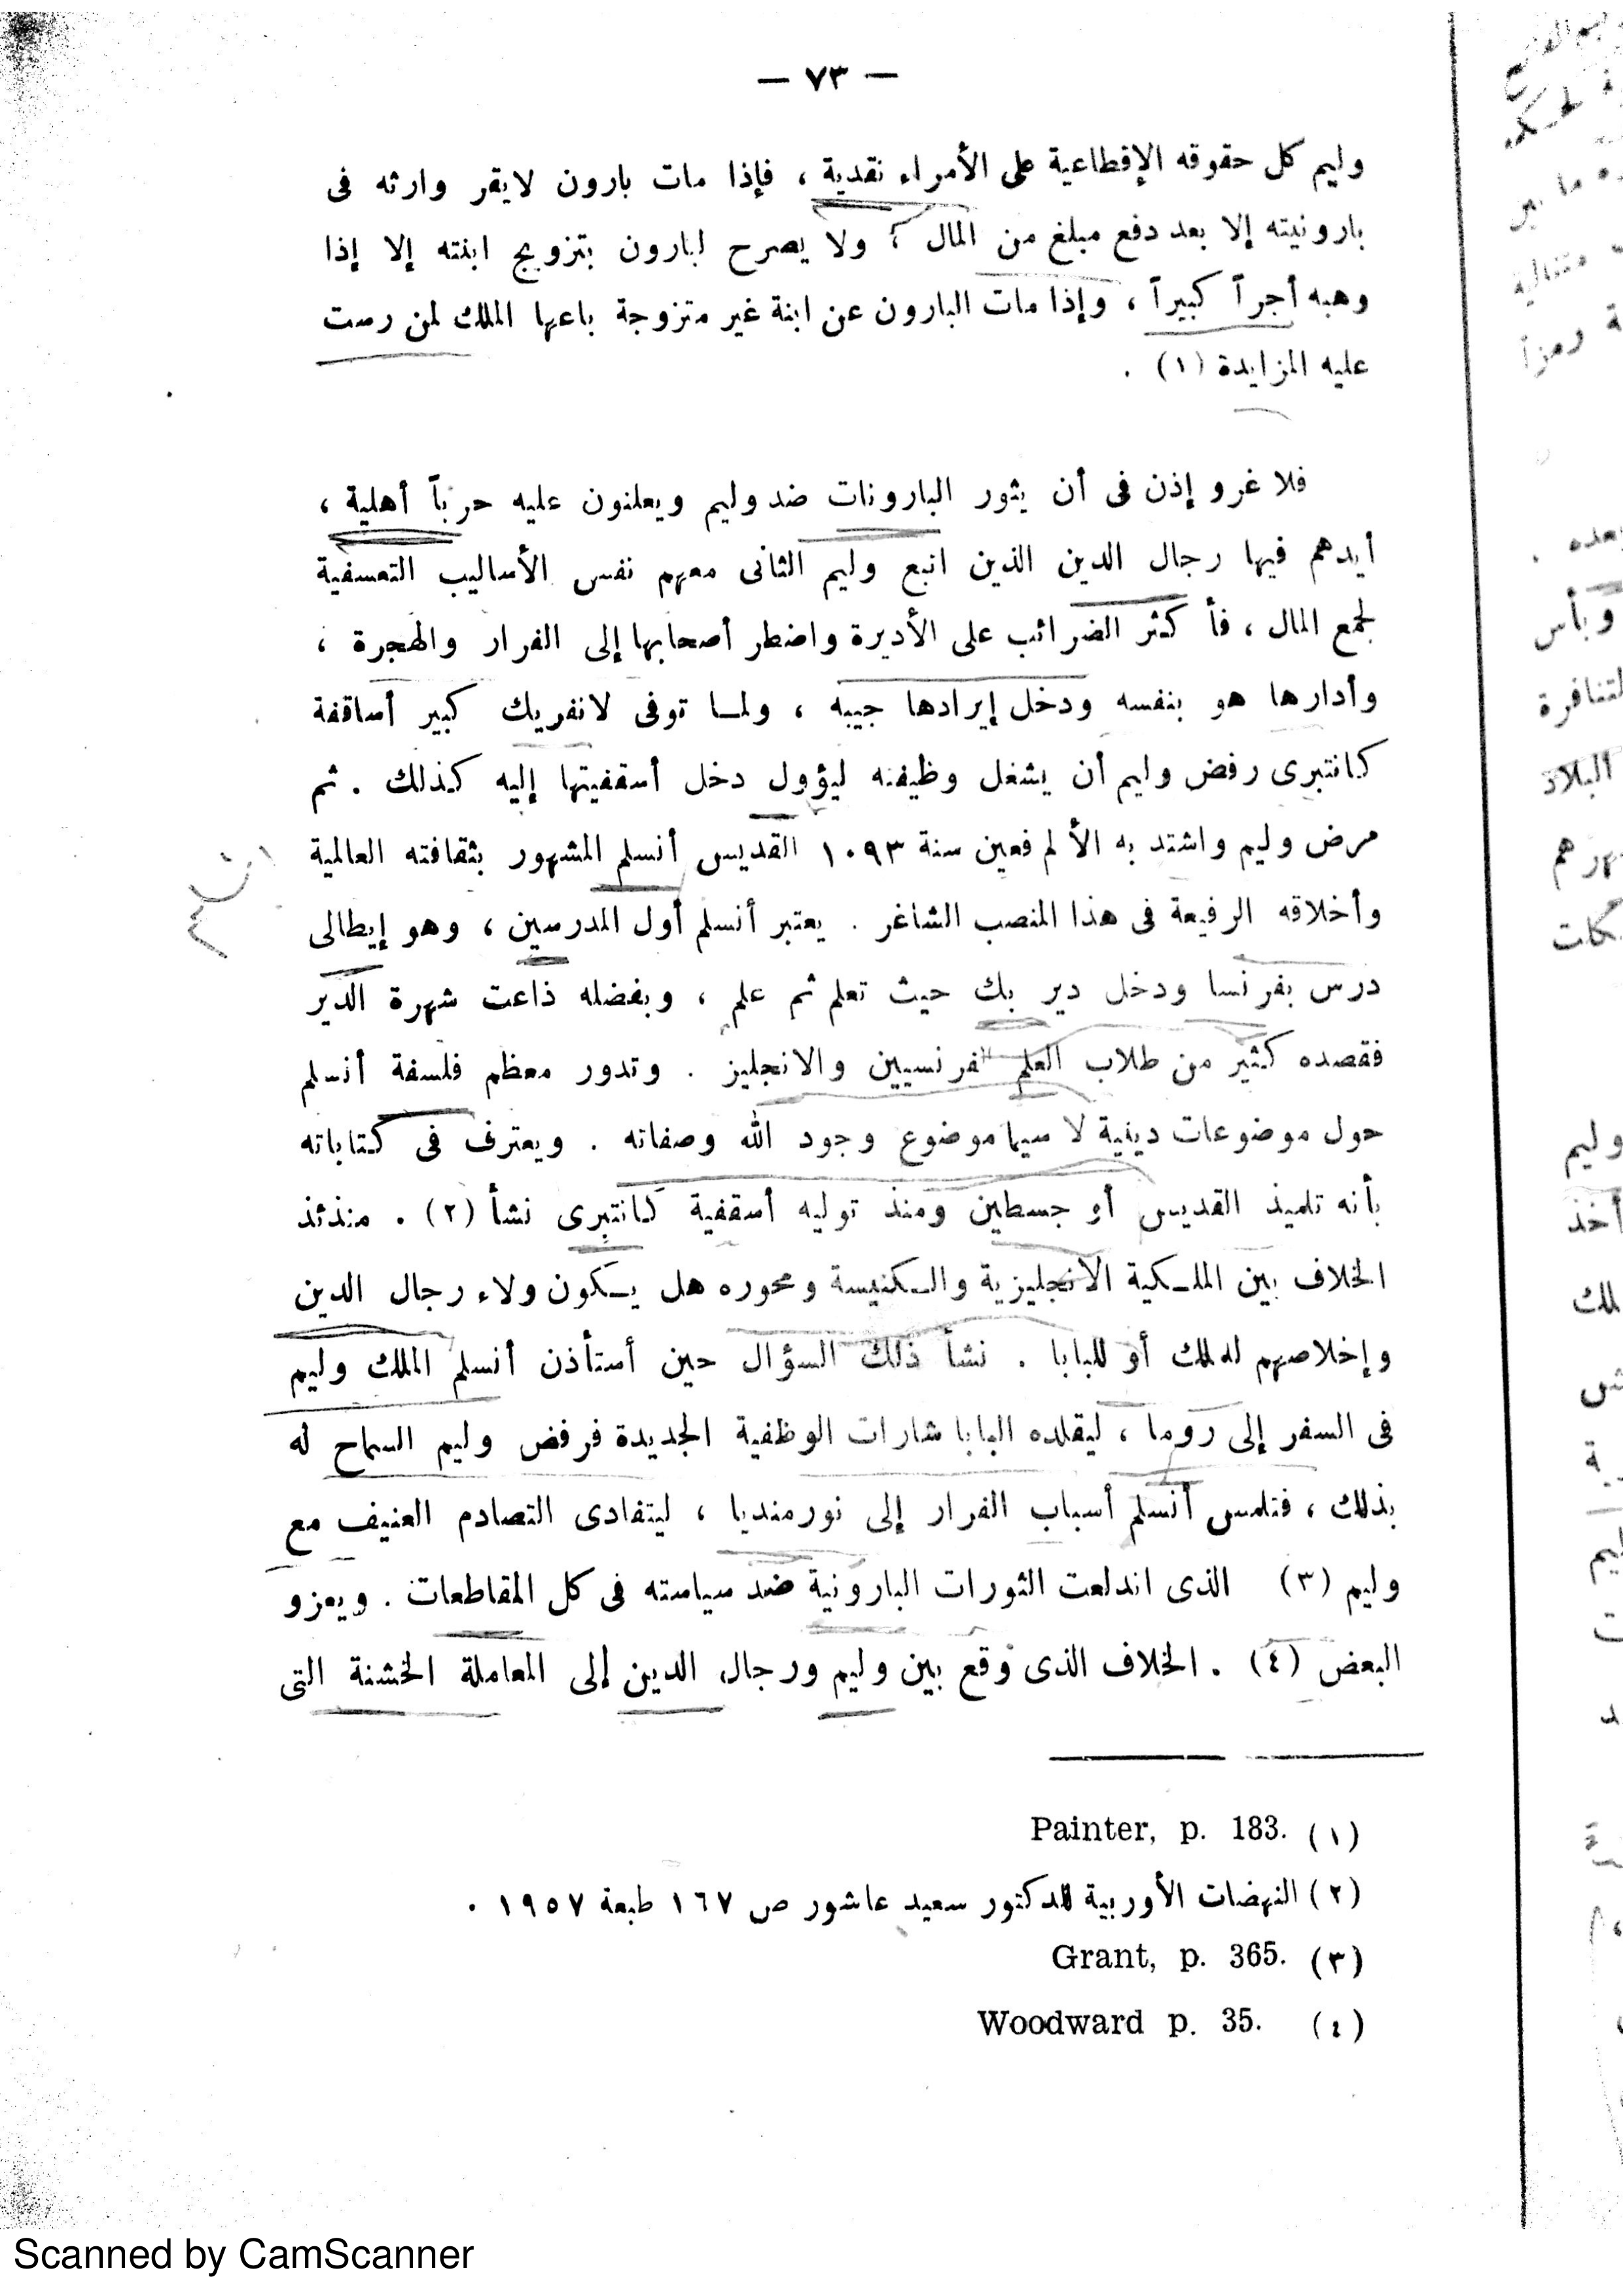 — ٧٣ —
وليم كل حقوقه الإقطاعية على الأمراء نقدية ، فإذا مات بارون لايقر وارثه فى
بارونيته إلا بعد دفع مبلغ من المال ، ولا يصرح لبارون بتزويج ابنته إلا إذا
وهبه أجراً كبيراً ، وإذا مات البارون عن ابنة غير متزوجة باعها الملك لمن رست
عليه المزايدة (١) .
فلا غرو إذن فى أن يثور البارونات ضد وليم ويعلنون عليه حرباً أهلية ،
أيدهم فيها رجال الدين الذين اتبع وليم الثانى معهم نفس الأساليب التعسفية
لجمع المال ، فأكثر الضرائب على الأديرة واضطر أصحابها إلى الفرار والهجرة ،
وأدارها هو بنفسه ودخل إيرادها جيبه ، ولما توفى لانفريك كبير أساقفة
كانتبرى رفض وليم أن يشغل وظيفته ليؤول دخل أسقفيتها إليه كذلك . ثم
مرض وليم واشتد به الألم فعين سنة ١٠٩٣ القديس أنسلم المشهور بثقافته العالمية
وأخلاقه الرفيعة فى هذا المنصب الشاغر . يعتبر أنسلم أول المدرسين ، وهو إيطالى
درس بفرنسا ودخل دير بك حيث تعلم ثم علم ، وبفضله ذاعت شهرة الدير
فقصده كثير من طلاب العلم الفرنسيين والانجليز . وتدور معظم فلسفة أنسلم
حول موضوعات دينية لا سيما موضوع وجود الله وصفاته . ويعترف فى كتاباته
بأنه تلميذ القديس أوجسطين ومنذ توليه أسقفية كانتبرى نشأ (٢) . منذئذ
الخلاف بين الملكية الانجليزية والكنيسة ومحوره هل يكون ولاء رجال الدين
وإخلاصهم للملك أو للبابا . نشأ ذلك السؤال حين أستأذن أنسلم الملك وليم
فى السفر إلى روما ، ليقلده البابا شارات الوظفية الجديدة فرفض وليم السماح له
بذلك ، فتلمس أنسلم أسباب الفرار إلى نورمنديا ، ليتفادى التصادم العنيف مع
وليم (٣) الذى اندلعت الثورات البارونية ضد سياسته فى كل المقاطعات . ويعزو
البعض (٤) . الخلاف الذى وقع بين وليم ورجال الدين إلى المعاملة الخشنة التى
(١) Painter, p. 183.
(٢) النهضات الأوربية للدكتور سعيد عاشور ص ١٦٧ طبعة ١٩٥٧ .
(٣) Grant, p. 365.
(٤) Woodward p. 35.
Scanned by CamScanner